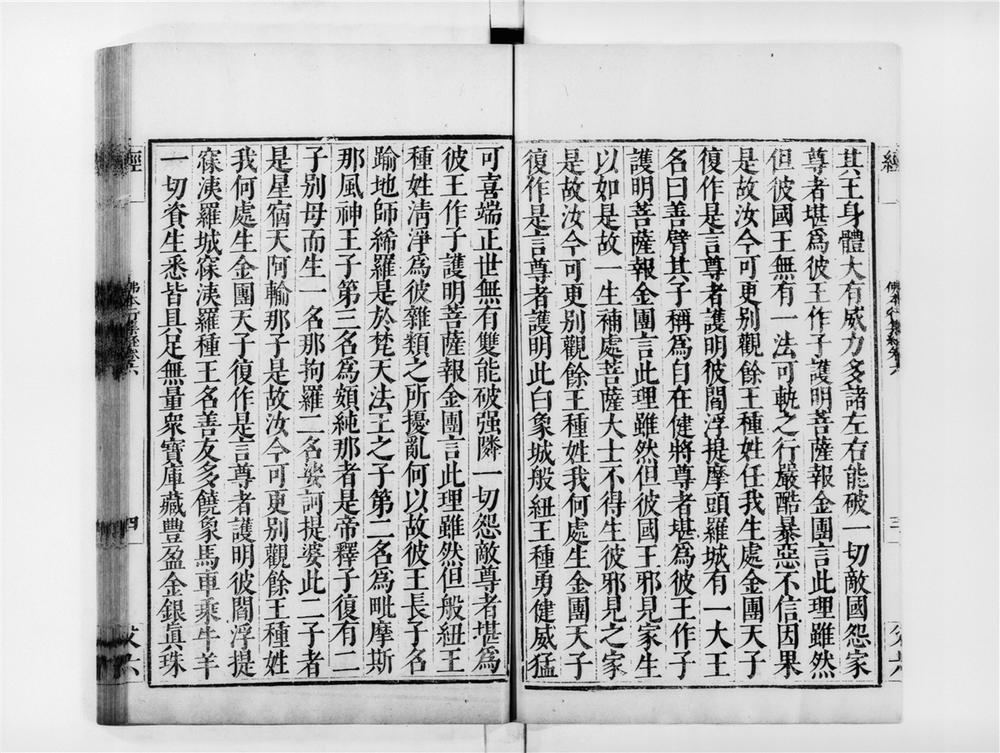 經
佛本行集經卷六
三
父六
其王身體大有威力多諸左右能破一切敵國怨家
尊者堪爲彼王作子護明菩薩報金團言此理雖然
但彼國王無有一法可軌之行嚴酷暴惡不信因果
是故汝今可更別觀餘王種姓任我生處金團天子
復作是言尊者護明彼閻浮提摩頭羅城有一大王
名曰善臂其子稱爲自在健將尊者堪爲彼王作子
護明菩薩報金團言此理雖然但彼國王邪見家生
以如是故一生補處菩薩大士不得生彼邪見之家
是故汝今可更別觀餘王種姓我何處生金團天子
復作是言尊者護明此白象城般紐王種勇健威猛
可喜端正世無有雙能破强隣一切怨敵尊者堪爲
彼王作子護明菩薩報金團言此理雖然但般紐王
種姓淸淨爲彼雜類之所擾亂何以故彼王長子名
踰地師絺羅是於梵天法王之子第二名爲毗摩斯
那風神王子第三名爲頞純那者是帝釋子復有二
子別母而生一名那拘羅二名婆訶提婆此二子者
是星宿天阿輸那子是故汝今可更別觀餘王種姓
我何處生金團天子復作是言尊者護明彼閻浮提
寐洟羅城寐洟羅種王名善友多饒象馬車乘牛羊
一切資生悉皆具足無量衆寶庫藏豐盈金銀眞珠
經
佛本行集經卷六
四
父六